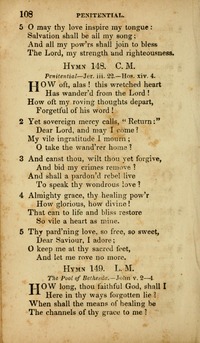 108 PENITENTIAL.
5 O may thy love inspire my tongue:
Salvation shall be all my song;
And all my pow'rs shall join to bless
The Lord, my strength and righteousness.
HYMN 148. C. M.
Penitential—Jer. iii. 22.—Hos. xiv. 4.
HOW oft, alas! this wretched heart
Has wander'd from the Lord!
How oft my roving thoughts depart,
Forgetful of his word!
2 Yet sovereign mercy calls, "Return:"
Dear Lord, and may I come!
My vile ingratitude I mourn;
O take the wand'rer home!
3 And canst thou, wilt thou yet forgive,
And bid my crimes remove!
And shall a pardon'd rebel live
To speak thy wondrous love!
4 Almighty grace, thy healing pow'r
How glorious, how divine!
That can to life and bliss restore
So vile a heart as mine.
5 Thy pard'ning love, so free, so sweet,
Dear Saviour, I adore;
O keep me at thy sacred feet,
And let me rove no more.
HYMN 149. L. M.
The Pool of Bethesda.—John v. 2—4
HOW long, thou faithful God, shall I
Here in thy ways forgotten lie!
When shall the means of healing be
The channels of thy grace to me!